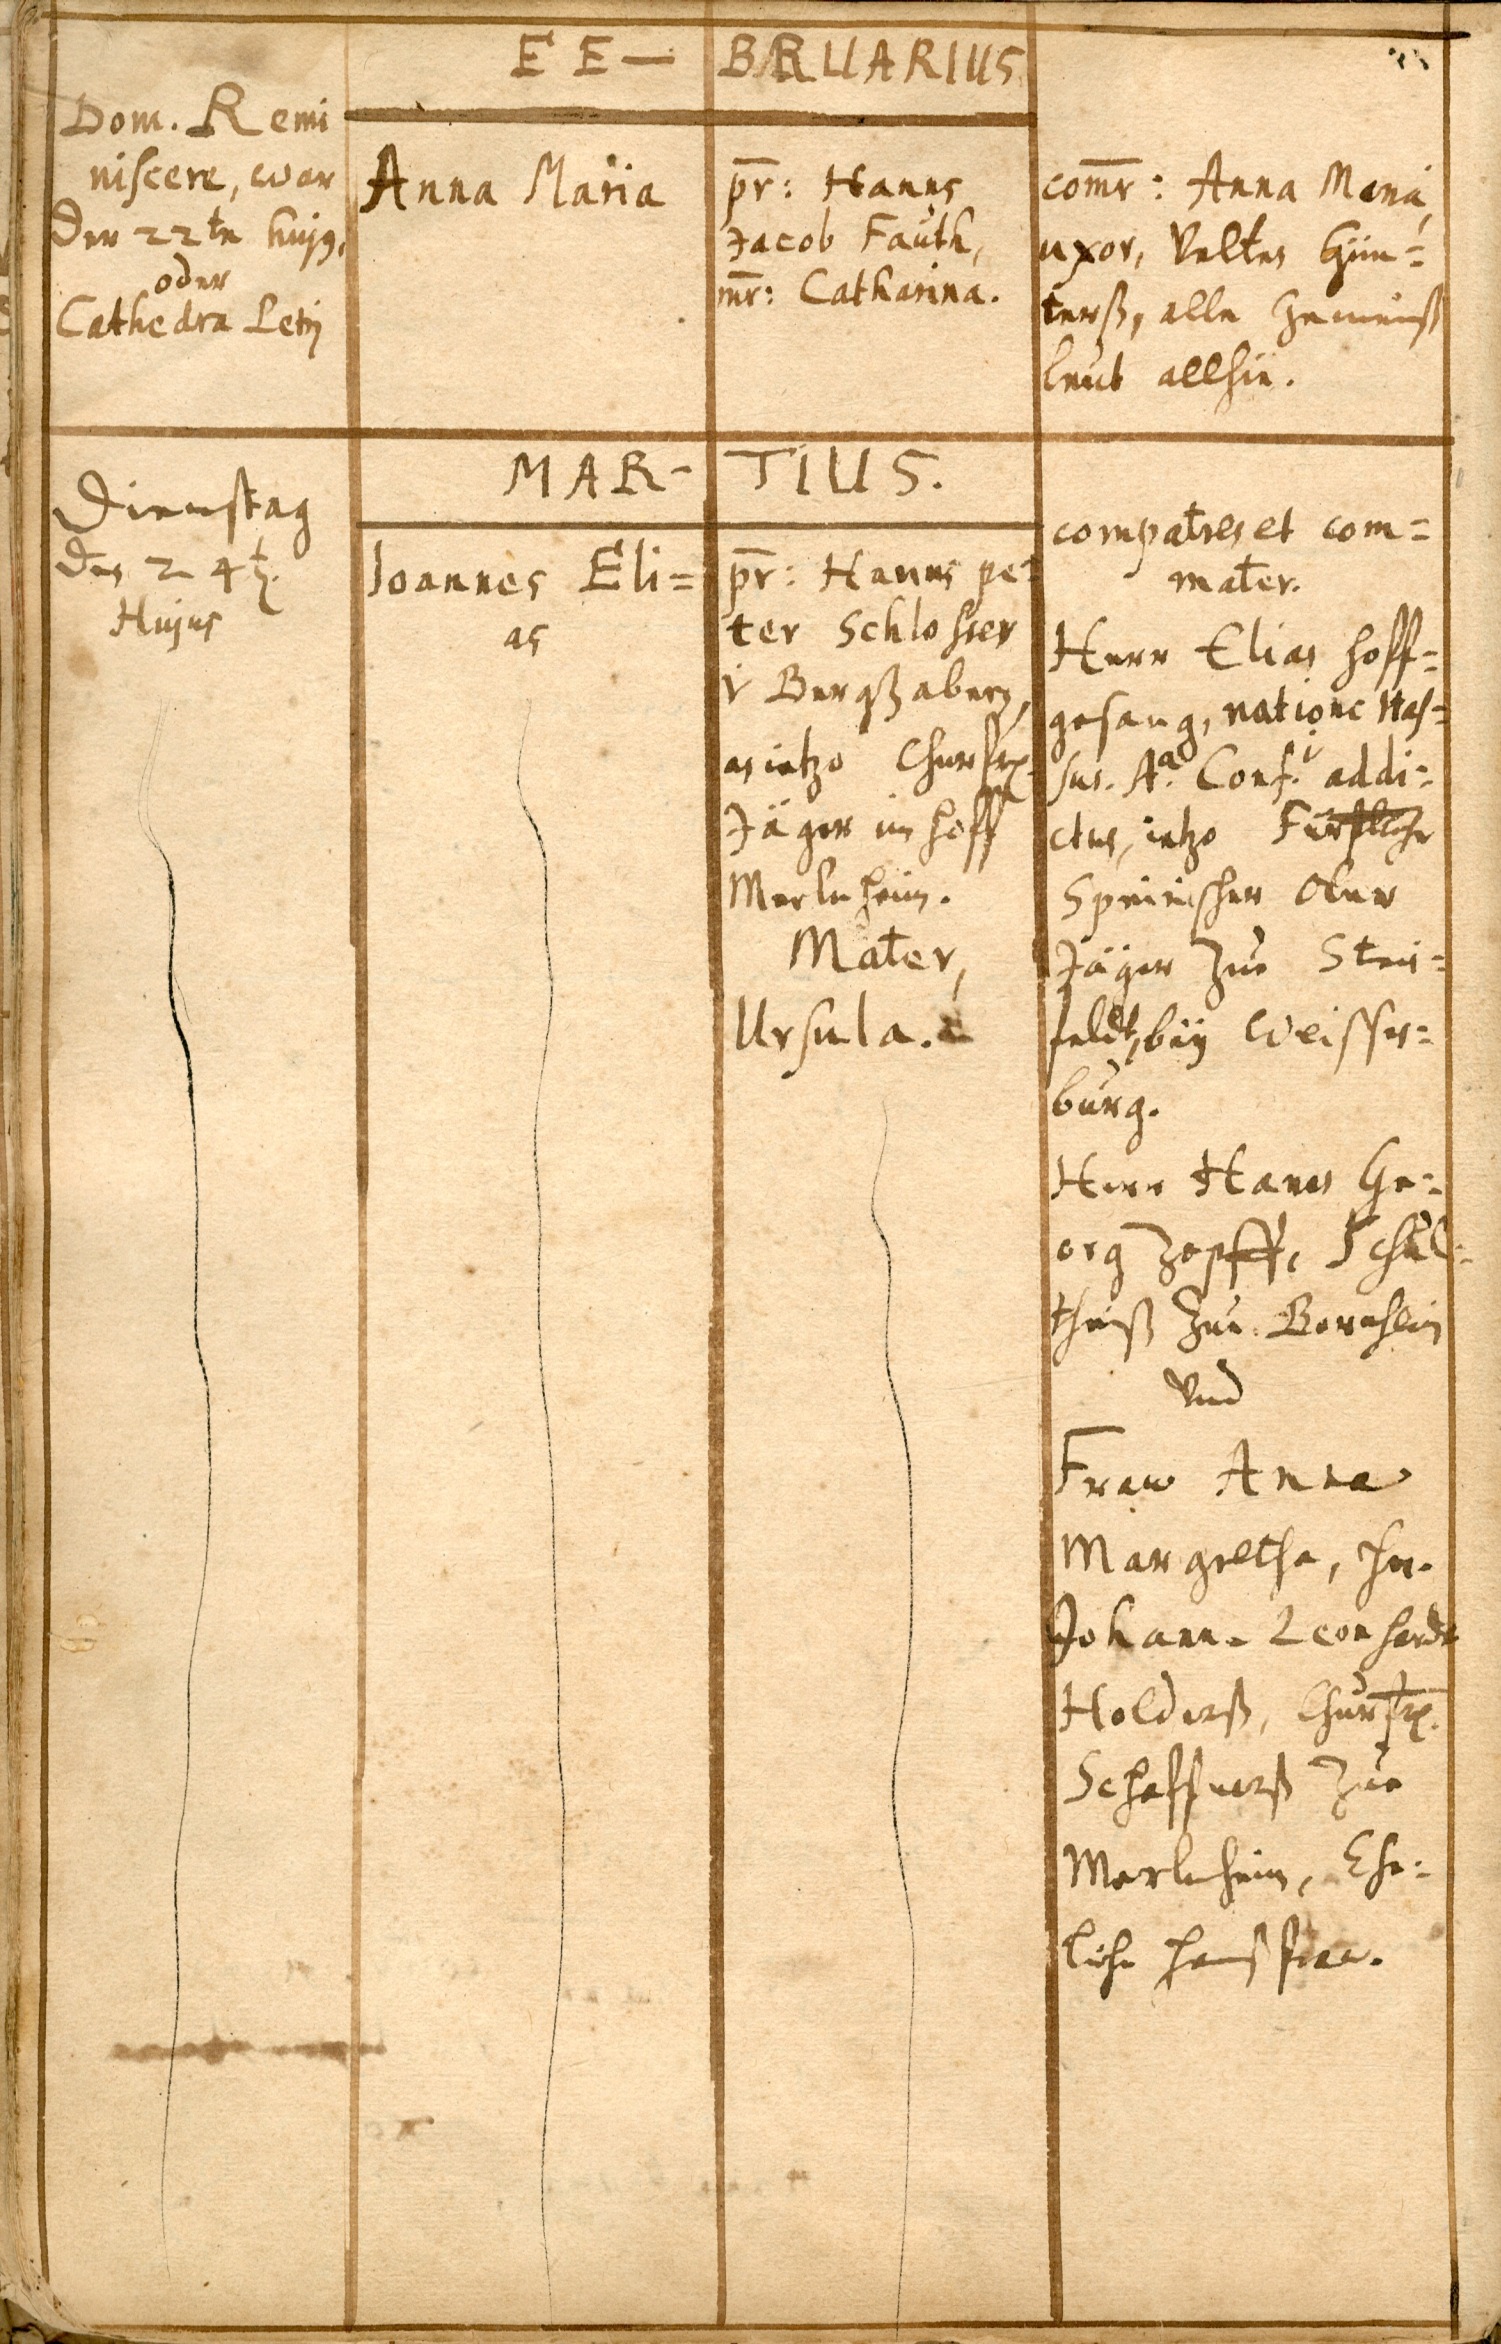 FE— BRUARIUS
Dom. Remi
niscere, war
der 22te hujꝰ,
oder
Cathedra Petrj
Anna Maria
pr̄: Hanns
Jacob Fauth,
mr̄: Catharina.
com̄r: Anna Maria,
uxor, Veltes Gün=
terß, alle Gemeinß
leut allhie.
MAR- TIUS.
Dienstag
des 24t.
Hujus
Joannes Eli=
as
pr̄: Hanns pe=
ter Schlosser
v Bergzabern,
Jäger im hoff
Merlnheim.
Mater,
Ursula.
compatres et com=
mater.
Herr Elias hoff=
gesang, natione Has=
sus. Aᵃ. Conf.ⁱ addi=
ctus, ietzo Fürstlicher
Speirischer Ober
Jäger zue Stein=
feldt, beÿ Weissen=
burg.
Herr Hanns Ge=
org Zopff, Schul=
theiß zue
Vnd
Fraw Anna
Margretha, Hn.
Johann Leonhardt
Holderß, Churfrl.
Schaffnerß zue
Merlnheim, Ehe=
liche haußfraw.